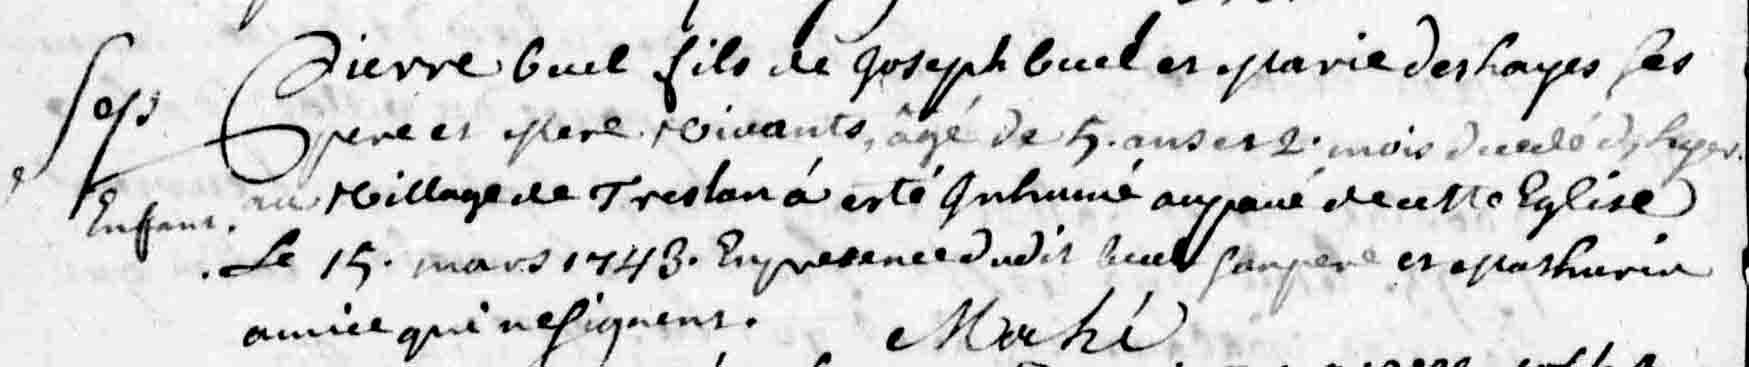 Pierre buel fils de Joseph buel et Marie deshayes ses
Sep
pere et Mere Vivants, âgé de 5. ans et 2. mois decedé d'hyer
Enfant.
au Village de Treslan á esté Inhumé au pavé de cette Eglise
Le 15. mars 1743. En presence dudit buel son pere et Mathurin
amice qui ne signent. Mahé